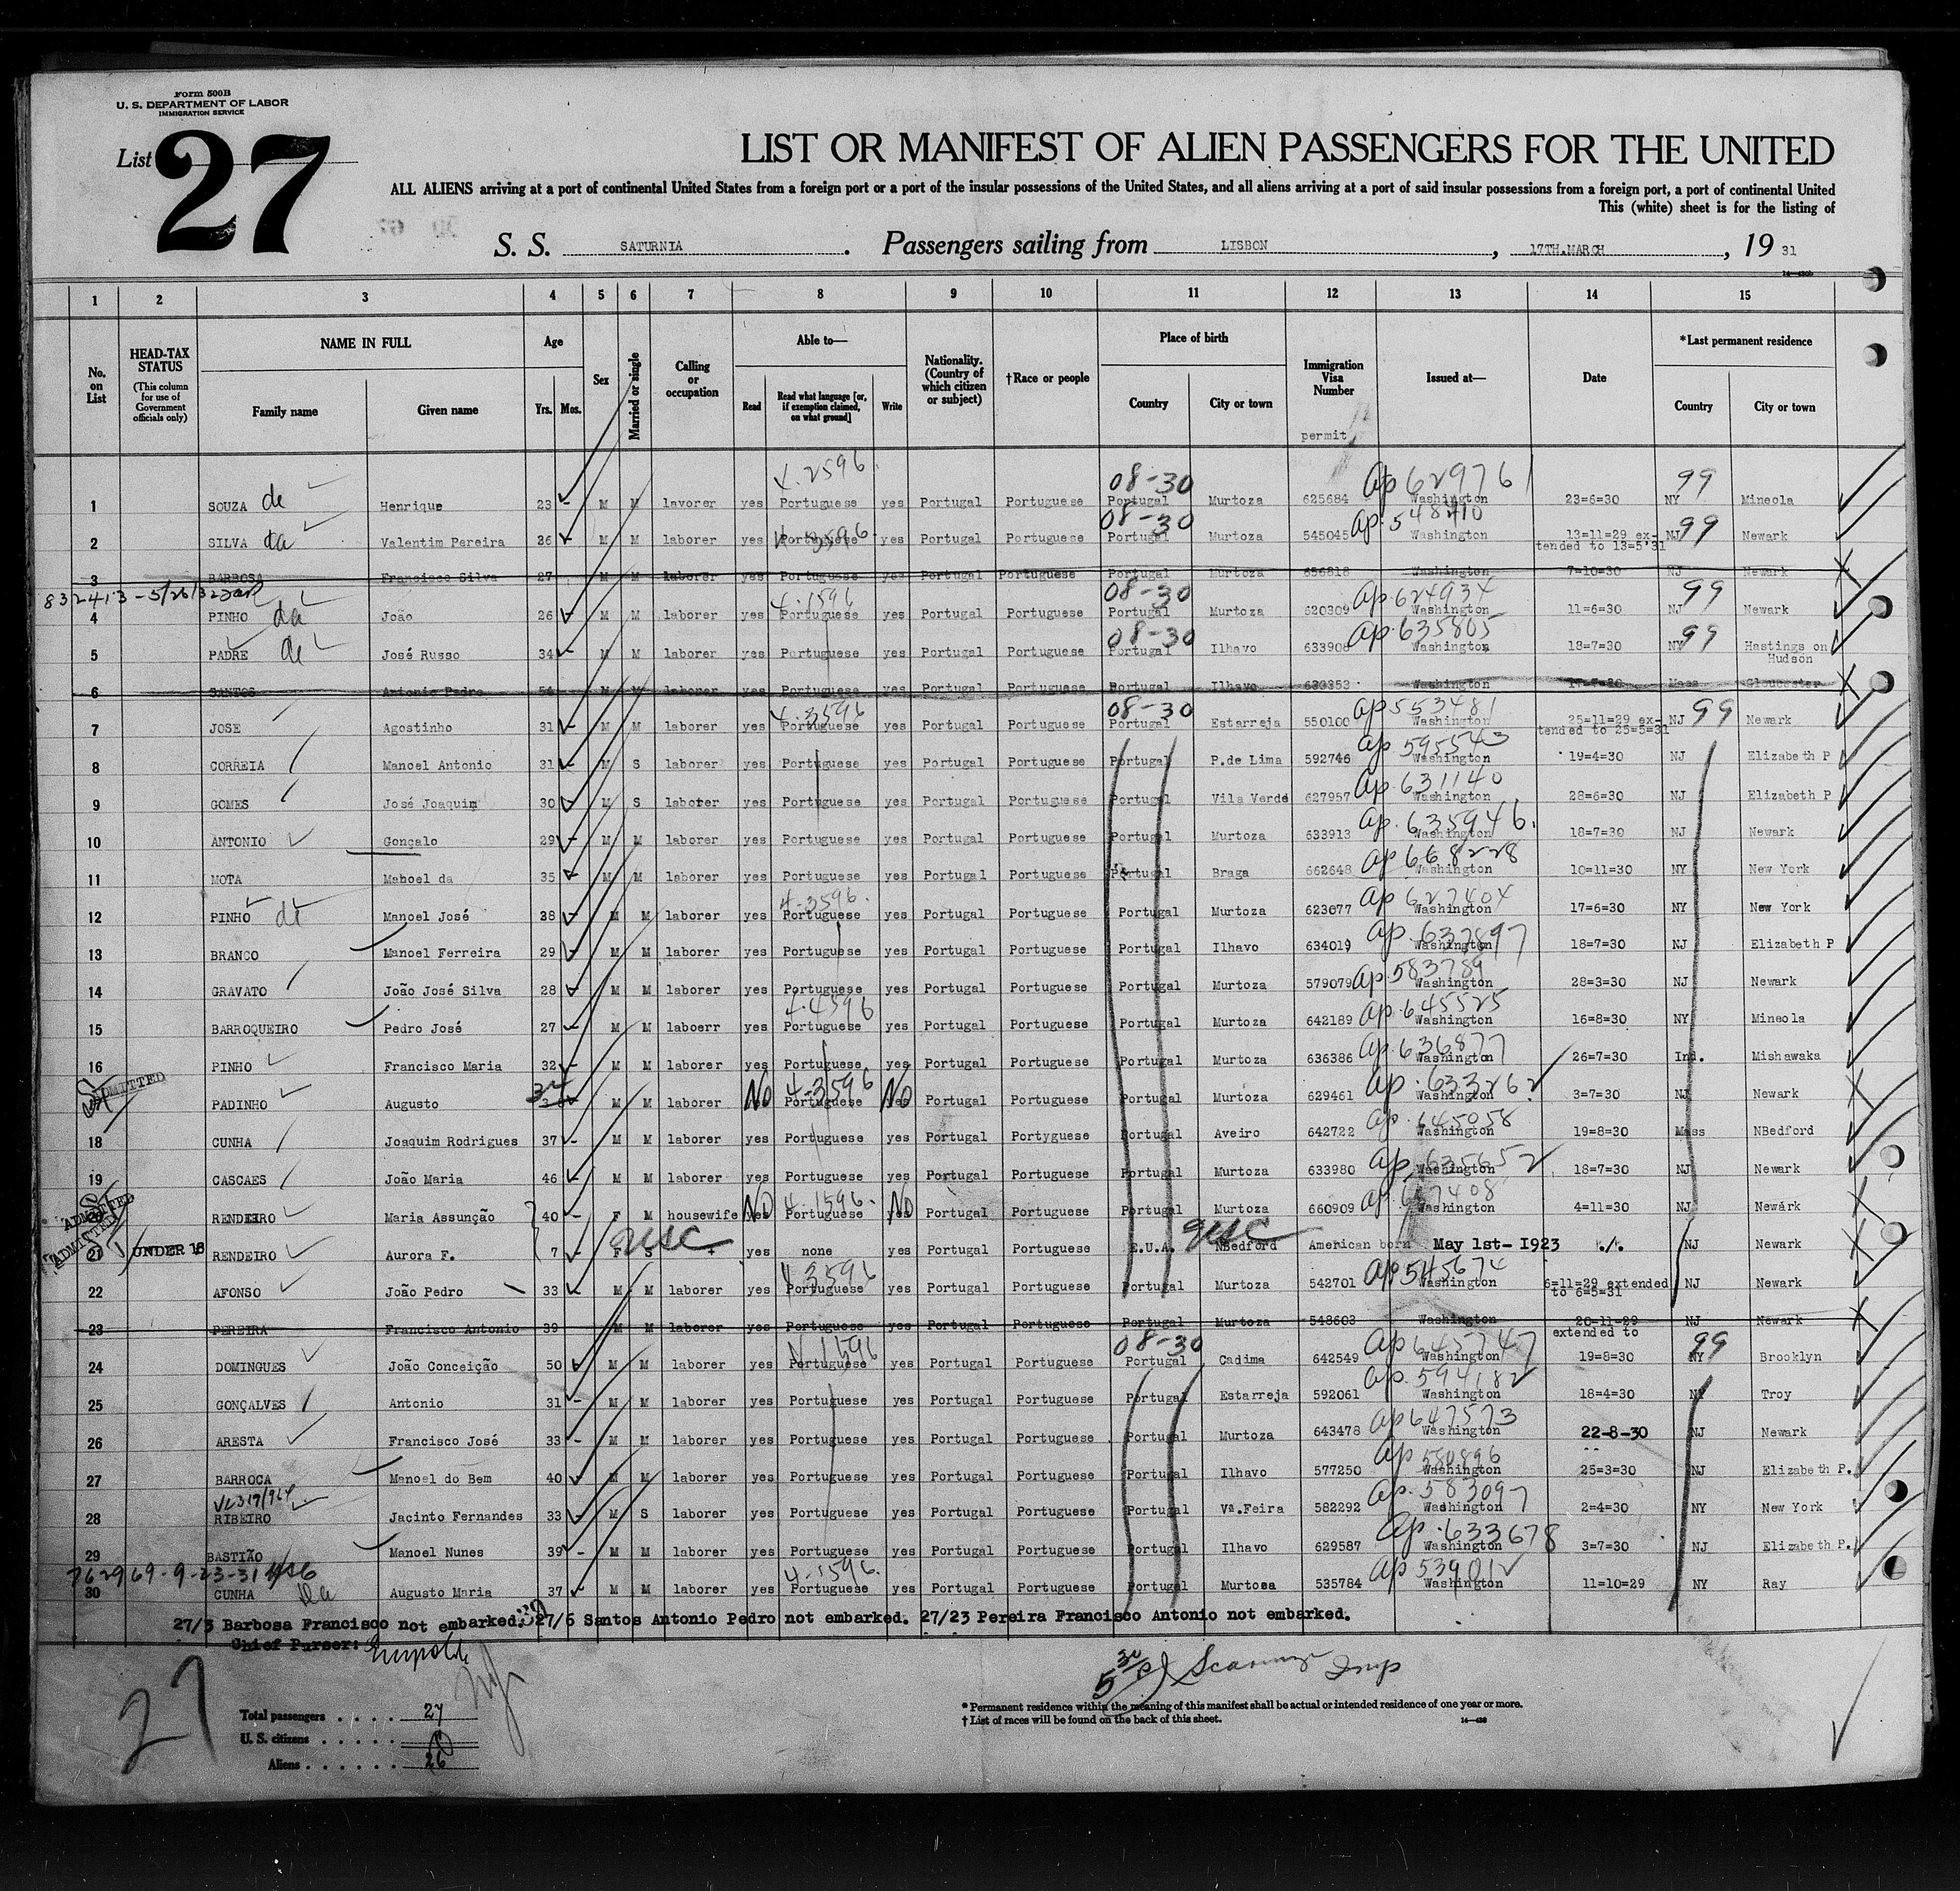 Form 500B
U. S. DEPARTMENT OF LABOR
IMMIGRATION SERVICE
List 27
LIST OR MANIFEST OF ALIEN PASSENGERS FOR THE UNITED
ALL ALIENS arriving at a port of continental United States from a foreign port or a port of the insular possessions of the United States, and all aliens arriving at a port of said insular possessions from a foreign port, a port of continental United
This (white) sheet is for the listing of
S. S. SATURNIA. Passengers sailing from LISBON, 17TH.MARCH, 19 31
1 2 3 4 5 6 7 8 9 10 11 12 13 14 15
No. on List HEAD-TAX STATUS (This column for use of Government officials only) NAME IN FULL Family name Given name Age Yrs. Mos. Sex Married or single Calling or occupation Able to— Read Read what language [or, if exemption claimed, on what ground] Write Nationality. (Country of which citizen or subject) †Race or people Place of birth Country City or town Immigration Visa Number permit Issued at— Date *Last permanent residence Country City or town
4-2596 08-30 Ap 629761 99
1 SOUZA de Henrique 23 - M M lavorer yes Portuguese yes Portugal Portuguese Portugal Murtoza 625684 Washington 23=6=30 NY Mineola
4-3596 08-30 Ap. 548410 99
2 SILVA da Valentim Pereira 26 - M M laborer yes Portuguese yes Portugal Portuguese Portugal Murtoza 545045 Washington 13=11=29 ex- NJ Newark
tended to 13=5'31
3 BARBOSA Francisco Silva 27 M M laborer yes Portuguese yes Portugal Portuguese Portugal Murtoza 656818 Washington 7-10-30 NJ Newark
832413-5/26/32 4-1596 08-30 Ap. 624934 99
4 PINHO da João 26 M M laborer yes Portuguese yes Portugal Portuguese Portugal Murtoza 620309 Washington 11=6=30 NJ Newark
08-30 Ap. 635805 99
5 PADRE de José Russo 34 - M M laborer yes Portuguese yes Portugal Portuguese Portugal Ilhavo 633906 Washington 18=7=30 NY Hastings on
Hudson
6 SANTOS Antonio Pedro 54 M M laborer yes Portuguese yes Portugal Portuguese Portugal Ilhavo 630353 Washington Mass Gloucester
4-3596 08-30 Ap 553481 99
7 JOSE Agostinho 31 - M M laborer yes Portuguese yes Portugal Portuguese Portugal Estarreja 550100 Washington 25=11=29 ex- NJ Newark
tended to 25=5=31
Ap 595543
8 CORREIA Manoel Antonio 31 - M S laborer yes Portuguese yes Portugal Portuguese Portugal P.de Lima 592746 Washington 19=4=30 NJ Elizabeth P
Ap 631140
9 GOMES José Joaquim 30 - M S laborer yes Portuguese yes Portugal Portuguese Portugal Vila Verde 627957 Washington 28=6=30 NJ Elizabeth P
Ap. 635946.
10 ANTONIO Gonçalo 29 - M M laborer yes Portuguese yes Portugal Portuguese Portugal Murtoza 633913 Washington 18=7=30 NJ Newark
Ap 668228
11 MOTA Maboel da 35 - M M laborer yes Portuguese yes Portugal Portuguese Portugal Braga 662648 Washington 10=11=30 NY New York
4-3596. Ap 627404
12 PINHO de Manoel José 38 - M M laborer yes Portuguese yes Portugal Portuguese Portugal Murtoza 623077 Washington 17=6=30 NY New York
Ap. 637897
13 BRANCO Manoel Ferreira 29 - M M laborer yes Portuguese yes Portugal Portuguese Portugal Ilhavo 634019 Washington 18=7=30 NJ Elizabeth P
Ap. 583789
14 GRAVATO João José Silva 28 - M M laborer yes Portuguese yes Portugal Portuguese Portugal Murtoza 579079 Washington 28=3=30 NJ Newark
4-4596 Ap. 645525
15 BARROQUEIRO Pedro José 27 - M M laboerr yes Portuguese yes Portugal Portuguese Portugal Murtoza 642189 Washington 16=8=30 NY Mineola
Ap. 636877
16 PINHO Francisco Maria 32 - M M laborer yes Portuguese yes Portugal Portuguese Portugal Murtoza 636386 Washington 26=7=30 Ind. Mishawaka
ADMITTED 32 No 4-3596 No Ap. 633262
PADINHO Augusto M M laborer Portuguese Portugal Portuguese Portugal Murtoza 629461 Washington 3=7=30 NJ Newark
Ap. 645058
18 CUNHA Joaquim Rodrigues 37 - M M laborer yes Portuguese yes Portugal Portyguese Portugal Aveiro 642722 Washington 19=8=30 Mass NBedford
Ap. 635652
19 CASCAES João Maria 46 - M M laborer yes Portuguese yes Portugal Portuguese Portugal Murtoza 633980 Washington 18=7=30 NJ Newark
ADMITTED No 4-1596. No
20 RENDEIRO Maria Assunção 40 - F M housewife yes Portuguese yes Portugal Portuguese Portugal Murtoza 660909 Washington 4=11=30 NJ Newark
ADMITTED USC USC
21 UNDER 18 RENDEIRO Aurora F. 7 - F S + yes none yes Portugal Portuguese E.U.A. NBedford American born May 1st-1923 ./. NJ Newark
4-3596 Ap 545674
22 AFONSO João Pedro 33 - M M laborer yes Portuguese yes Portugal Portuguese Portugal Murtoza 542701 Washington 6=11=29 extended NJ Newark
to 6=5=31
23 PEREIRA Francisco Antonio 39 M M laborer yes Portuguese yes Portugal Portuguese Portugal Murtoza 548603 Washington 20-11-29 NJ Newark
extended to
4-1596 08-30 Ap 645747 99
24 DOMINGUES João Conceição 50 M M laborer yes Portuguese yes Portugal Portuguese Portugal Cadima 642549 Washington 19=8=30 NY Brooklyn
Ap. 594182
25 GONÇALVES Antonio 31 - M M laborer yes Portuguese yes Portugal Portuguese Portugal Estarreja 592061 Washington 18=4=30 NY Troy
Ap 647573
26 ARESTA Francisco José 33 - M M laborer yes Portuguese yes Portugal Portuguese Portugal Murtoza 643478 Washington 22-8-30 NJ Newark
Ap 580896
27 BARROCA Manoel do Bem 40 - M M laborer yes Portuguese yes Portugal Portuguese Portugal Ilhavo 577250 Washington 25=3=30 NJ Elizabeth P.
Ap. 583097
28 RIBEIRO Jacinto Fernandes 33 - M S laborer yes Portuguese yes Portugal Portuguese Portugal Vª.Feira 582292 Washington 2=4=30 NY New York
Ap. 633678
29 BASTIÃO Manoel Nunes 39 - M M laborer yes Portuguese yes Portugal Portuguese Portugal Ilhavo 629587 Washington 3=7=30 NJ Elizabeth P.
762969-9-23-31 4-1596. Ap 539012
30 CUNHA da Augusto Maria 37 - M M laborer yes Portuguese yes Portugal Portuguese Portugal Murtosa 535784 Washington 11=10=29 NY Ray
27/3 Barbosa Francisco not embarked. 27/6 Santos Antonio Pedro not embarked. 27/23 Pereira Francisco Antonio not embarked.
Chief Purser:
27
Total passengers . . . . 27
U. S. citizens . . . . . 1
Aliens . . . . . . 26
* Permanent residence within the meaning of this manifest shall be actual or intended residence of one year or more.
† List of races will be found on the back of this sheet.